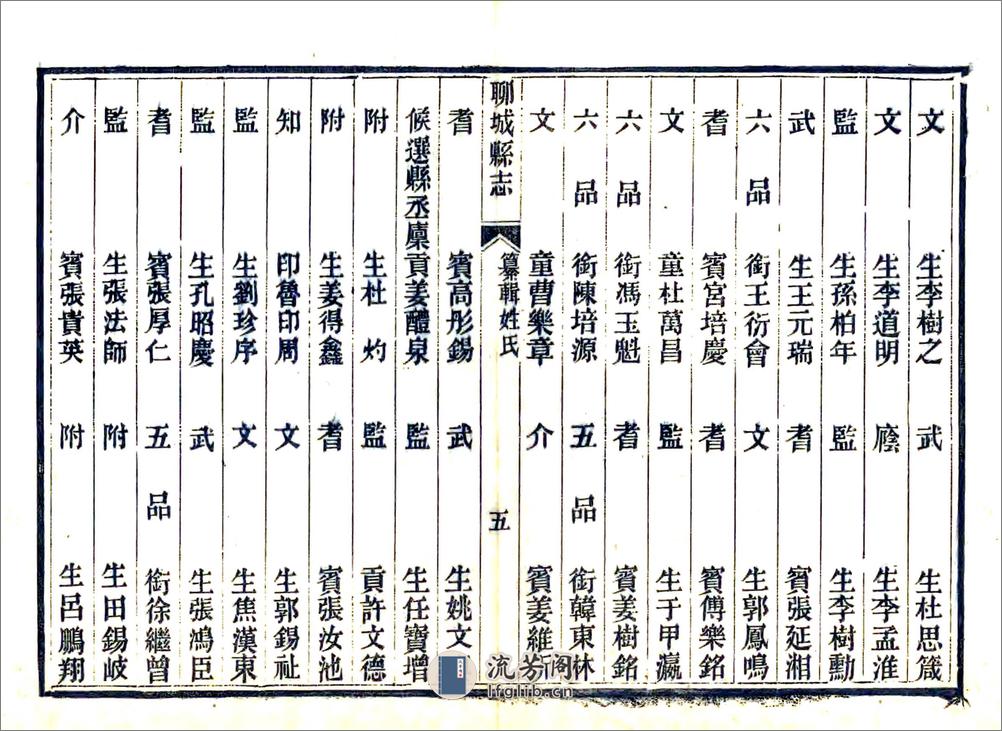 文生李樹之 武生杜思箴
文生李道明 廕生李孟淮
監生孫柏年 監生李樹勳
武生王元瑞 耆賓張延湘
六品銜王衍會 文生郭鳳鳴
耆賓宮培慶 耆賓傅樂銘
文童杜萬昌 監生于甲瀛
六品銜馮玉魁 耆賓姜樹銘
六品銜陳培源 五品銜韓東林
文童曹樂章 介賓姜維
聊城縣志 纂輯姓氏 五
耆賓高彤錫 武生姚文
候選縣丞廩貢姜醴泉 監生任寶增
附生杜灼 監貢許文德
附生姜得鑫 耆賓張汝池
知印魯印周 文生郭錫祉
監生劉珍序 文生焦漢東
監生孔昭慶 武生張鴻臣
耆賓張厚仁 五品銜徐繼曾
監生張法師 附生田錫岐
介賓張貴英 附生呂鵬翔
流芳閣
lfglib.cn